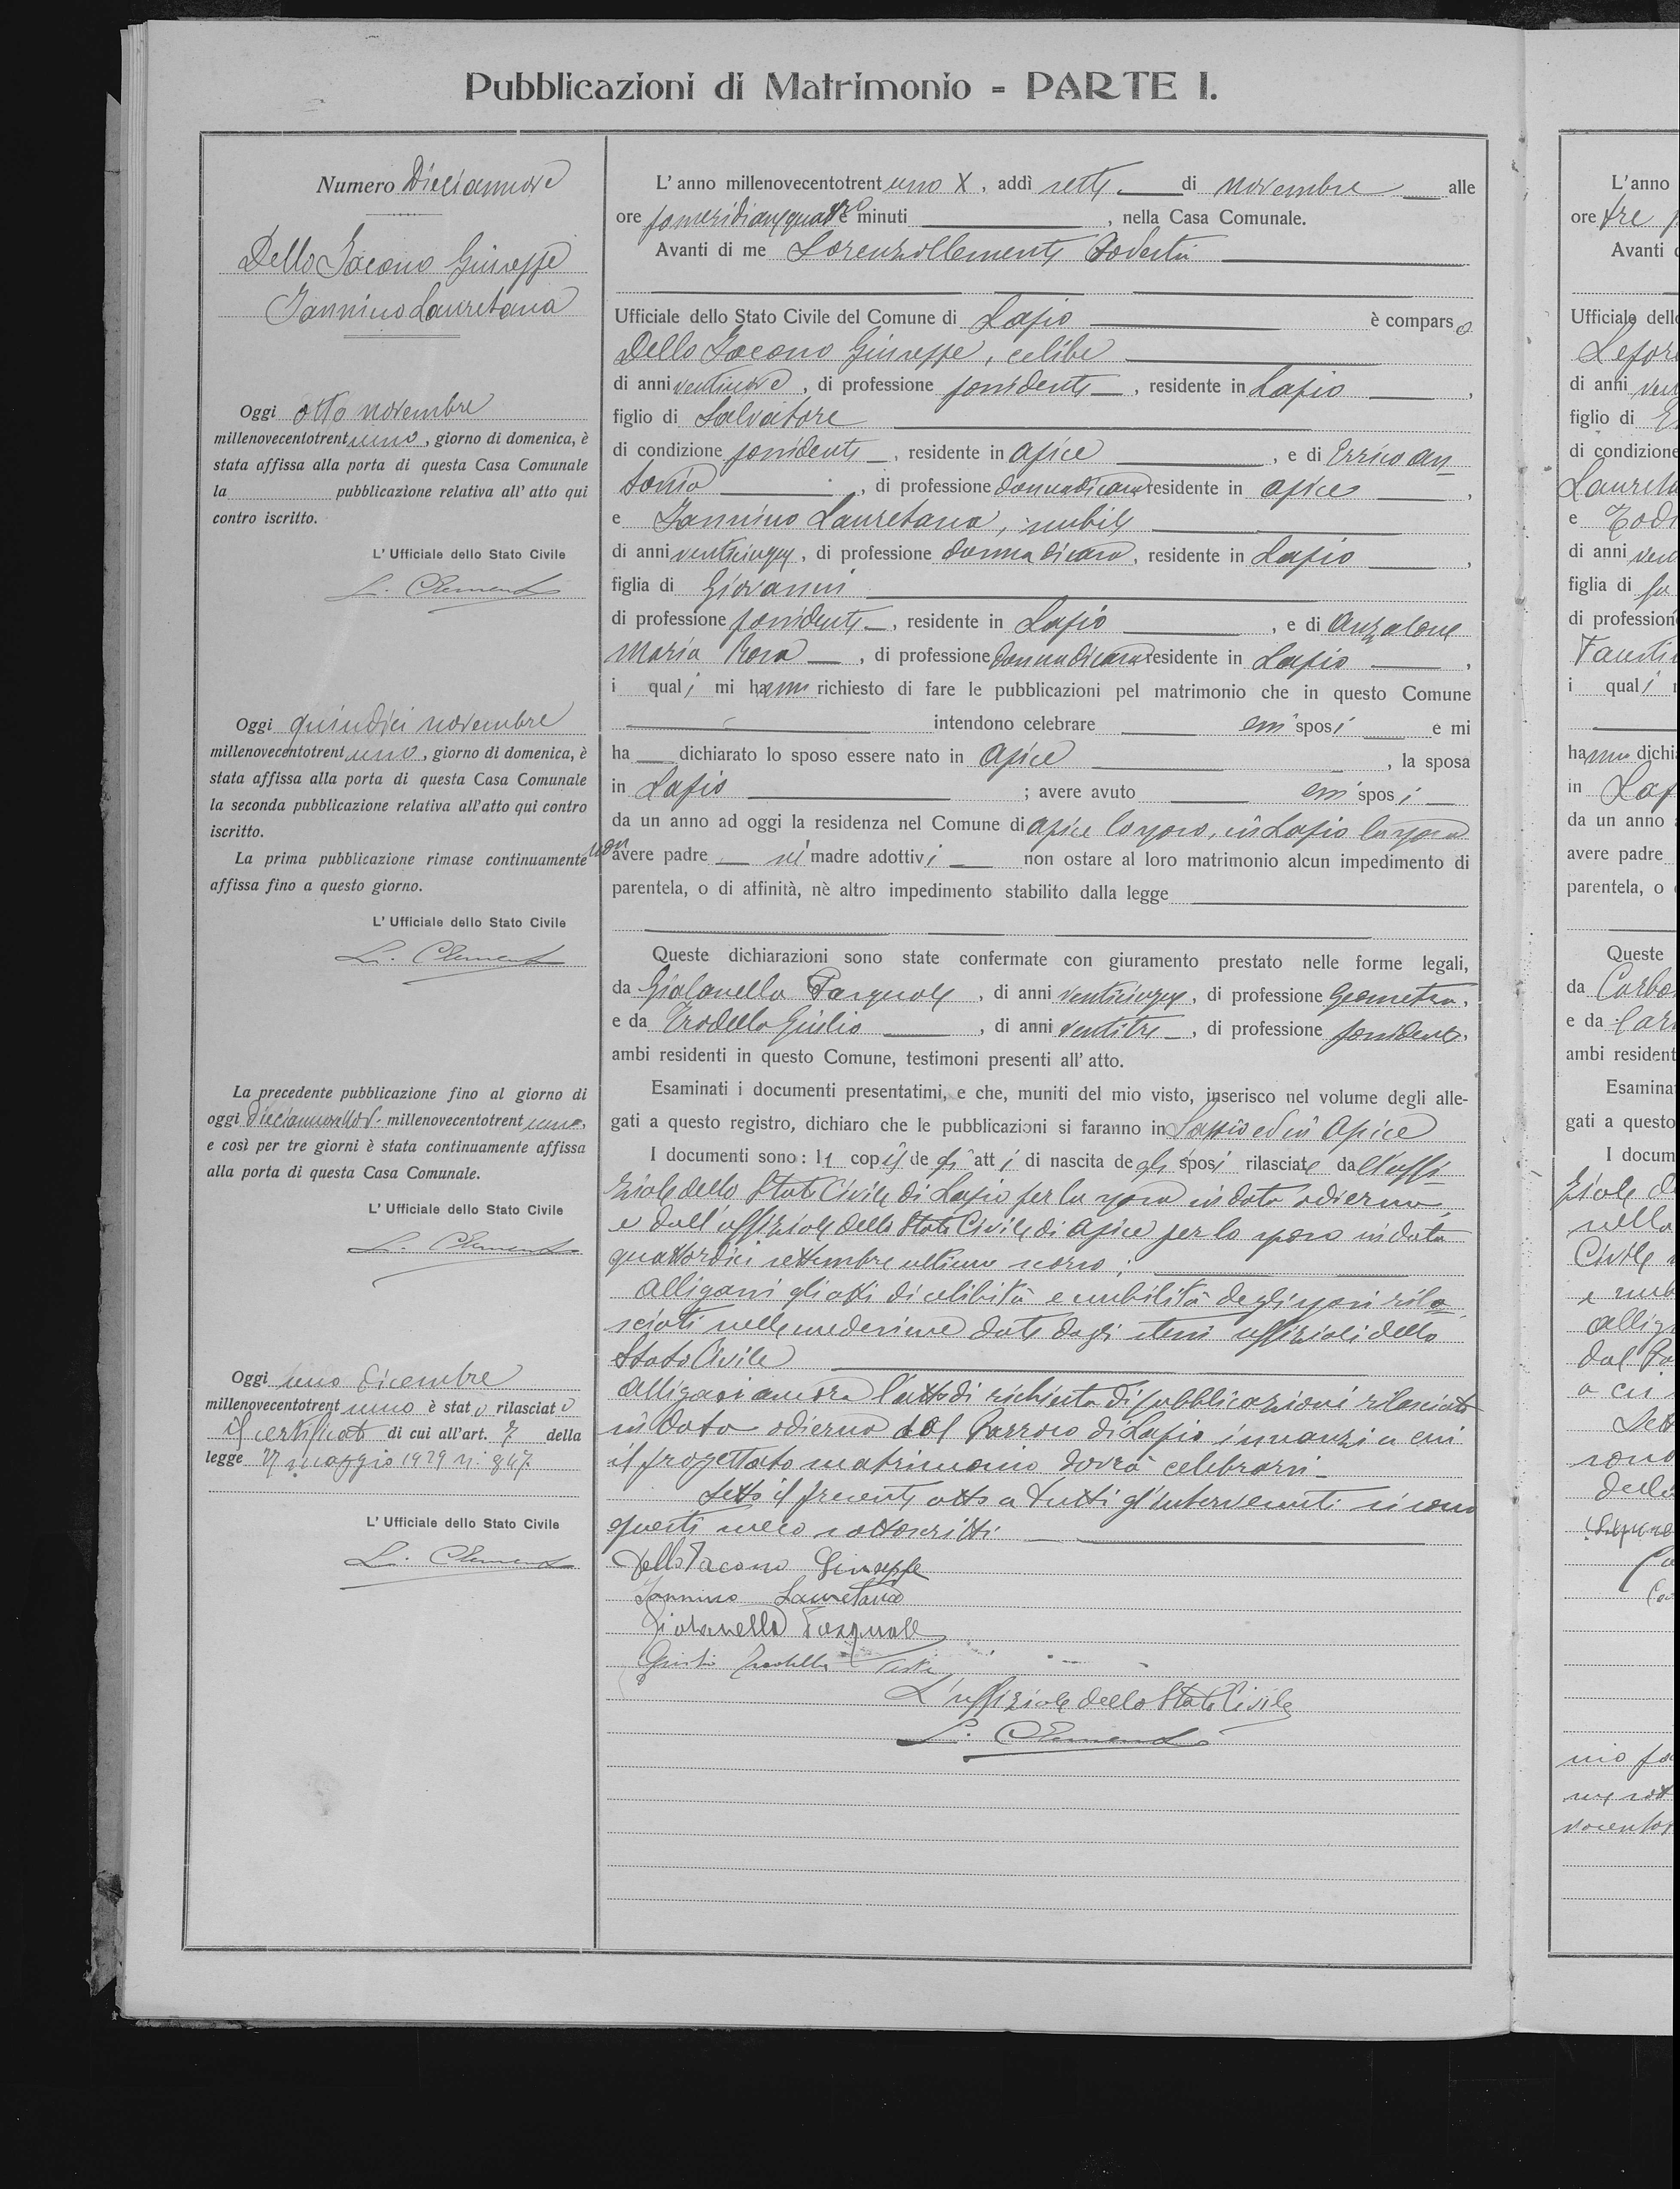 Pubblicazioni di Matrimonio - PARTE I.
Numero Diciannove
Dello Iacono Giuseppe
Iannino Lauretana
Oggi otto novembre
millenovecentotrentuno, giorno di domenica, è
stata affissa alla porta di questa Casa Comunale
la pubblicazione relativa all'atto qui
contro iscritto.
L'Ufficiale dello Stato Civile
L. Clemente
Oggi quindici novembre
millenovecentotrentuno, giorno di domenica, è
stata affissa alla porta di questa Casa Comunale
la seconda pubblicazione relativa all'atto qui contro
iscritto.
La prima pubblicazione rimase continuamente
affissa fino a questo giorno.
L'Ufficiale dello Stato Civile
L. Clemente
La precedente pubblicazione fino al giorno di
oggi diciannove millenovecentotrentuno,
e così per tre giorni è stata continuamente affissa
alla porta di questa Casa Comunale.
L'Ufficiale dello Stato Civile
L. Clemente
Oggi uno dicembre
millenovecentotrentuno è stato rilasciato
il certificato di cui all'art. 7 della
legge 27 maggio 1929 n. 847
L'Ufficiale dello Stato Civile
L. Clemente
L'anno millenovecentotrentuno X, addì sette di novembre alle
ore pomeridiane quattro e minuti , nella Casa Comunale.
Avanti di me Lorenzo Clemente Podestà
Ufficiale dello Stato Civile del Comune di Lapio è comparso
Dello Iacono Giuseppe, celibe
di anni ventinove, di professione possidente, residente in Lapio,
figlio di Salvatore
di condizione possidente, residente in Apice, e di Errico An
tonia, di professione donna di casa residente in Apice,
e Iannino Lauretana, nubile
di anni venticinque, di professione donna di casa, residente in Lapio,
figlia di Giovanni
di professione possidente, residente in Lapio, e di Anzalone
Maria Rosa, di professione donna di casa residente in Lapio,
i quali mi hanno richiesto di fare le pubblicazioni pel matrimonio che in questo Comune
intendono celebrare essi sposi e mi
ha dichiarato lo sposo essere nato in Apice, la sposa
in Lapio; avere avuto essi sposi
da un anno ad oggi la residenza nel Comune di Apice lo sposo, in Lapio la sposa
non avere padre nè madre adottivi non ostare al loro matrimonio alcun impedimento di
parentela, o di affinità, nè altro impedimento stabilito dalla legge
Queste dichiarazioni sono state confermate con giuramento prestato nelle forme legali,
da Giolanella Pasquale, di anni venticinque, di professione Geometra,
e da Trodella Giulio, di anni ventitre, di professione possidente,
ambi residenti in questo Comune, testimoni presenti all'atto.
Esaminati i documenti presentatimi, e che, muniti del mio visto, inserisco nel volume degli alle-
gati a questo registro, dichiaro che le pubblicazioni si faranno in Lapio ed in Apice
I documenti sono: le copie degli atti di nascita degli sposi rilasciate dall'uffi
ziale dello Stato Civile di Lapio per la sposa in data odierna
e dall'uffiziale dello Stato Civile di Apice per lo sposo in data
quattordici settembre ultimo scorso;
Alligansi gli atti di celibità e nubilità degli sposi rila
sciati nelle medesime date dagli stessi uffiziali dello
Stato Civile
Alligasi ancora l'atto di richiesta di pubblicazioni rilasciato
in data odierna dal Parroco di Lapio innanzi a cui
il progettato matrimonio dovrà celebrarsi.
Letto il presente atto a tutti gl'intervenuti si sono
questi meco sottoscritti
Dello Iacono Giuseppe
Iannino Lauretana
Giolanella Pasquale
Giulio Trodella Teste
L'uffiziale dello Stato Civile
L. Clemente
L'anno
ore tre
Avanti
Ufficiale dell
di anni
figlio di
di condizione
Laureta
e
di anni
figlia di
di profession
i quali
hanno dichi
in Lap
da un anno
avere padre
parentela, o
Queste
da
e da
ambi resident
Esamina
gati a questo
I docum